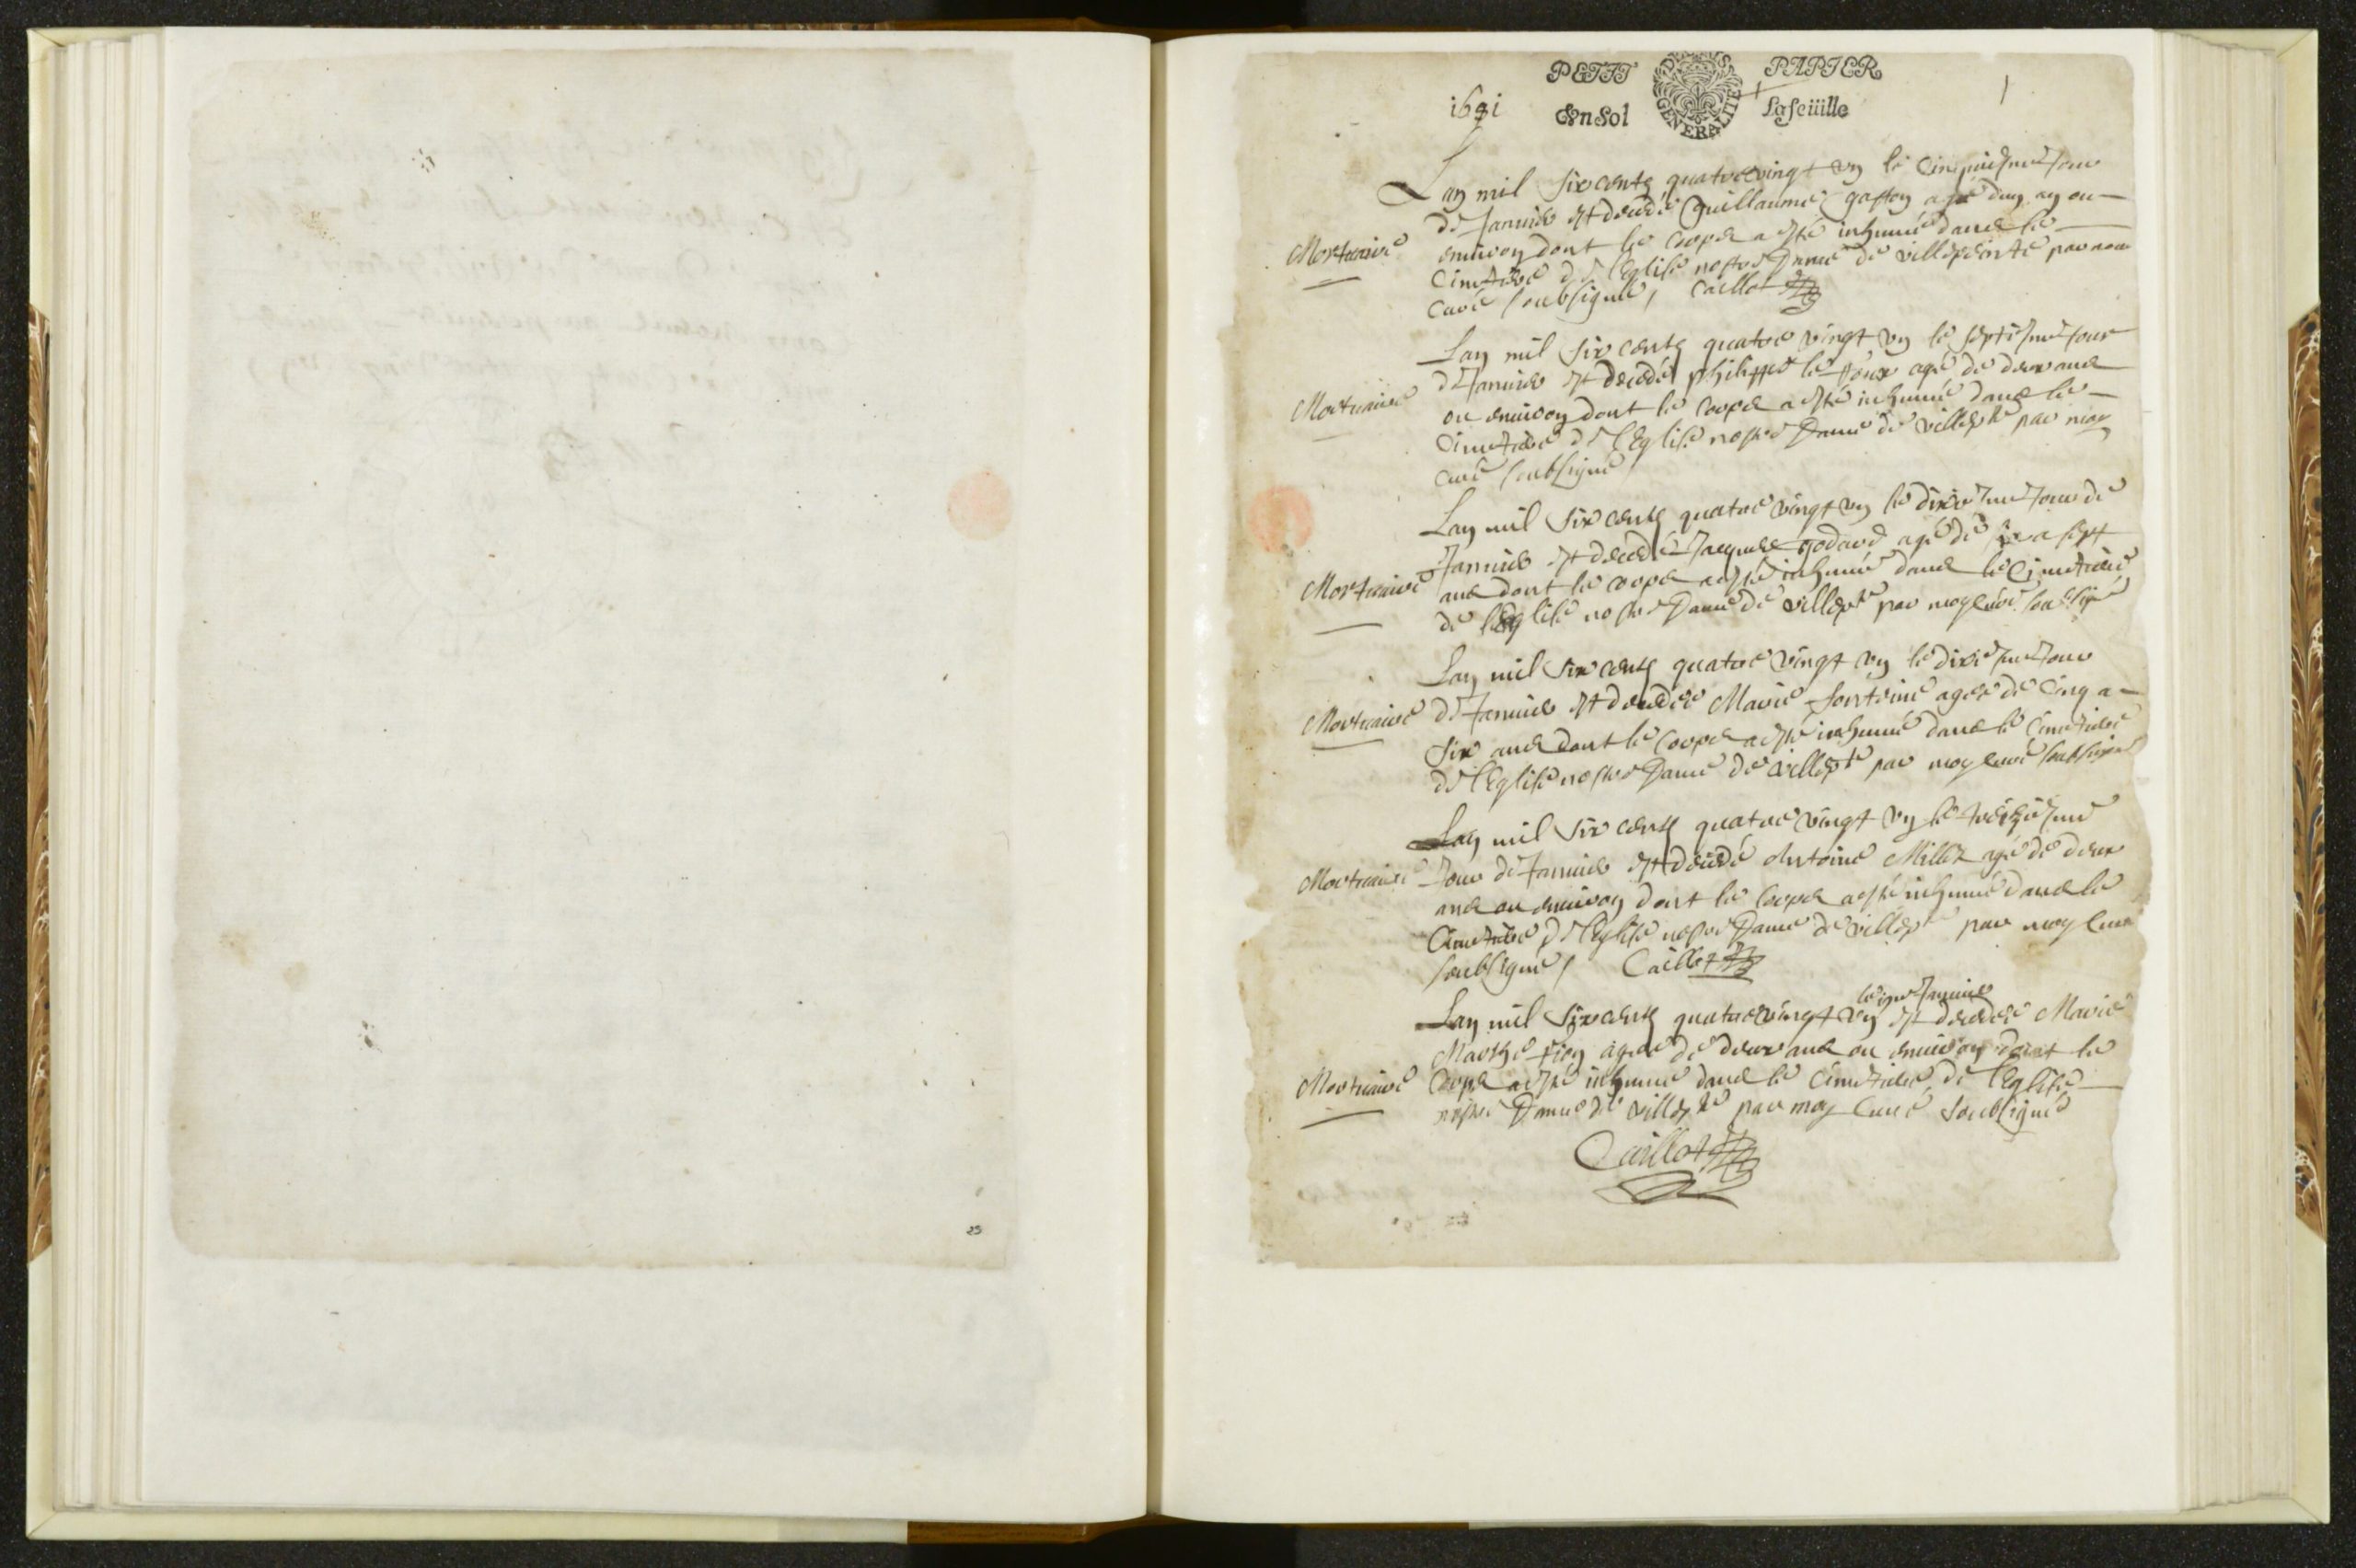 PETIT PAPIER
1681 Un Sol La feüille
1
GENERALITE
Lan mil six cents quatre vingt un le cinquiesme jour
de Janvier est decedé Guillaume Gaston agé dun an ou
Mortuaire
environ dont le corps a esté inhumé dans le
Cimetiere de l'Eglise nostre Dame de villepeinte par nous
curé soubsigné, Caillot
Lan mil six cents quatre vingt un le septiesme jour
de Janvier est decedé philippes le agé de deux ans
Mortuaire
ou environ dont le corps a esté inhumé dans le
Cimetiere de l'Eglise nostre Dame de villepte par moy
curé soubsigné
Lan mil six cents quatre vingt un le dixiesme jour de
Janvier est decedé Jacques godard agé de six a sept
Mortuaire
ans dont le corps a esté inhumé dans le Cimetiere
de l'Eglise nostre Dame de villepte par moy curé soubsigné
Lan mil six cents quatre vingt un le dixiesme jour
Mortuaire
de Janvier est decedée Marie fonteine agee de cinq a
six ans dont le corps a esté inhumé dans le Cimetiere
de l'Eglise nostre Dame de villepte par moy curé soubsigné
Lan mil six cents quatre vingt un le treiziesme
Mortuaire
jour de Janvier est decedé Antoine Millet agé de deux
ans ou environ dont le corps a esté inhumé dans le
Cimetiere de l'Eglise nostre Dame de villepte par moy curé
soubsigné, Caillot
Janvier
Lan mil six cents quatre vingt un est decedée Marie
Marthe agee de deux ans ou environ dont le
Mortuaire
Corps a esté inhumé dans le Cimetiere de l'Eglise
nostre Dame de villepte par moy Curé soubsigné
Caillot